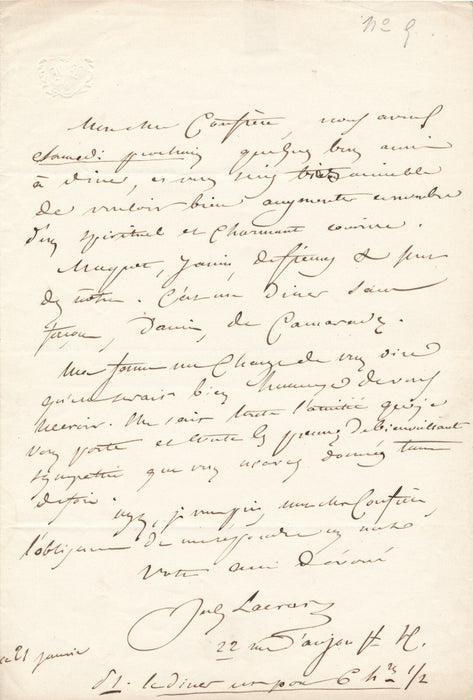 n° 9
Mon cher Confrère, nous avons
Samedi prochain quelques bons amis
à diner, et vous seriez bien aimable
de vouloir bien augmenter ce nombre
d'un spirituel et charmant convive.
Maquet, Janin, & sont
des nôtres. C'est un Diner sans
façon, d'amis, de Camarades.
Ma femme me charge de vous dire
qu'elle serait bien heureuse de vous
recevoir. Elle sait toute l'amitié que je
vous porte et toutes les preuves de bienveillante
sympathie que vous m'avez données tant
de fois.
ayez, je vous prie, mon cher Confrère,
l'obligeance de me répondre un mot,
Votre ami Dévoué
Jules Lacroix
22 rue d'anjou St H.
ce 21 janvier
le diner est pour 6 h res 1/2